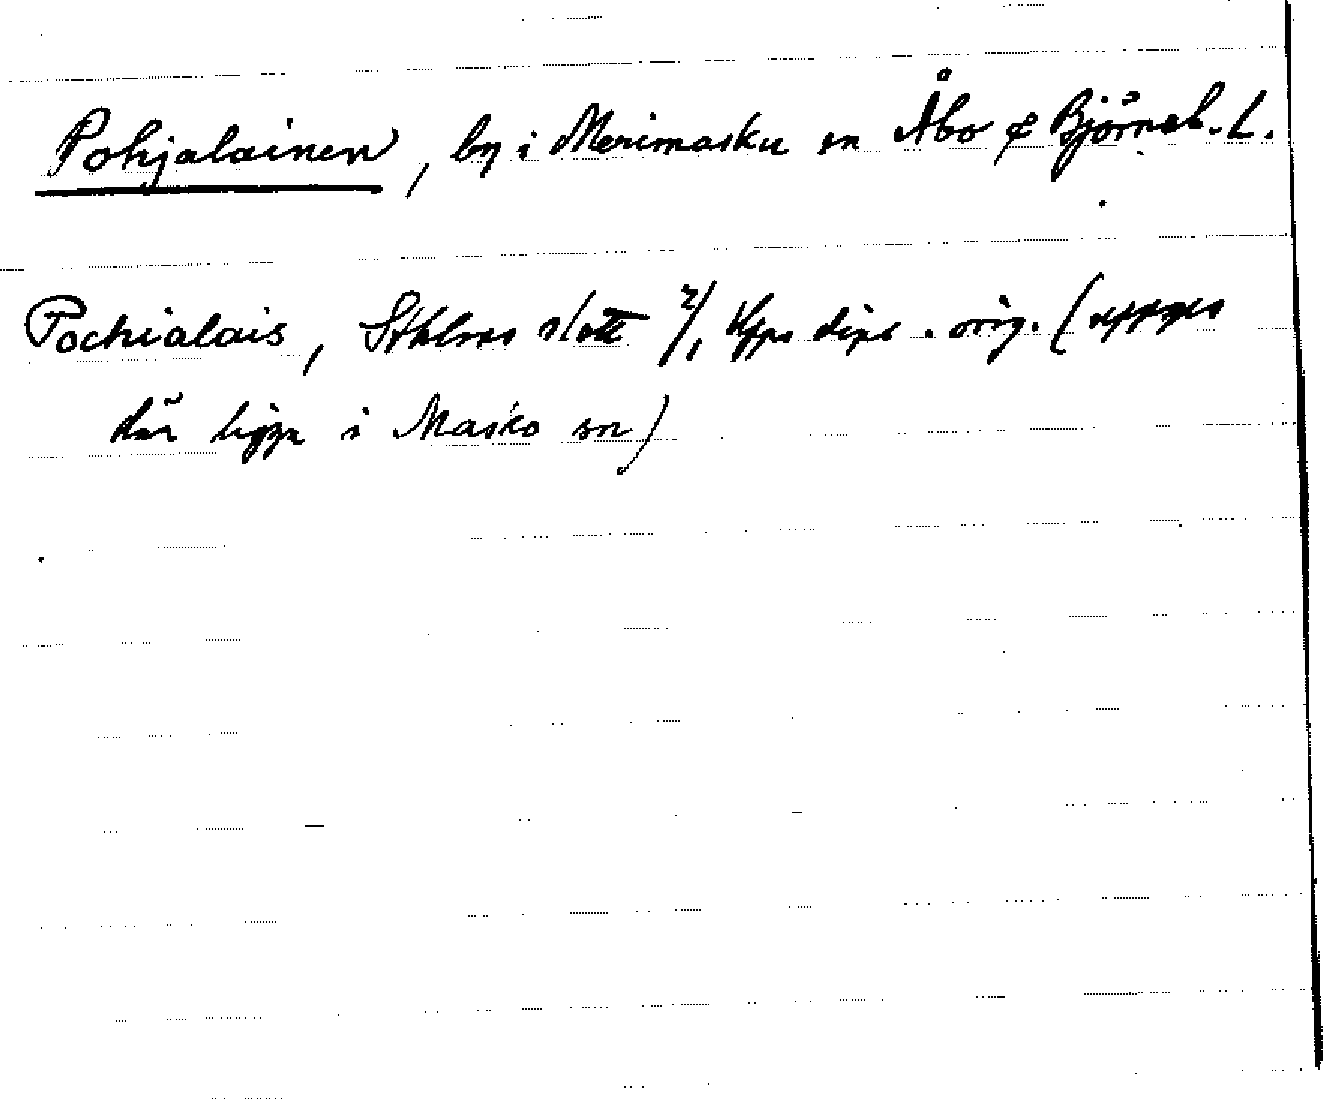 Pohjalainen, by i Merimasku sn Åbo & Björneb. L.
Pochialais, Sthlms slott 2/1 dipl. orig. (uppges
här ligga i Masko sn)